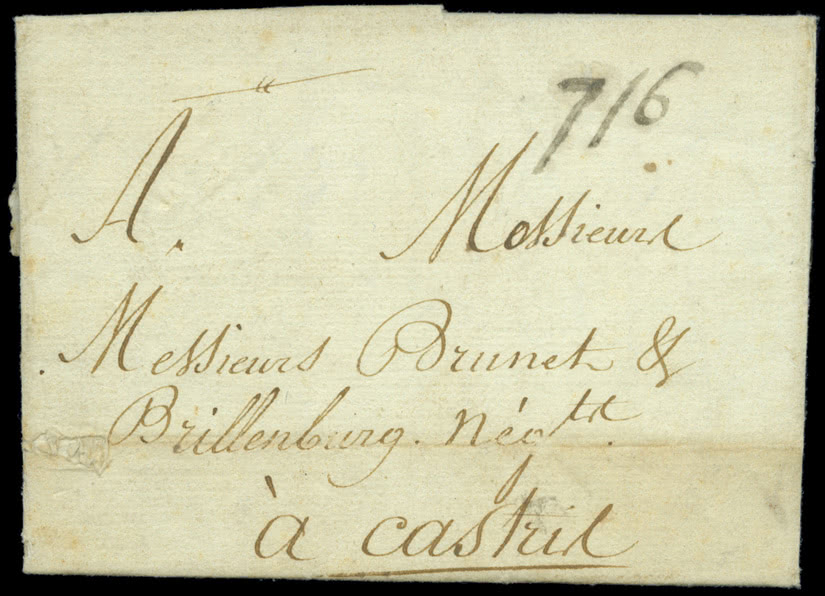 7/6
A. Messieurs
Messieurs Brunet &
Brillenburg. Nég.ts
à castries